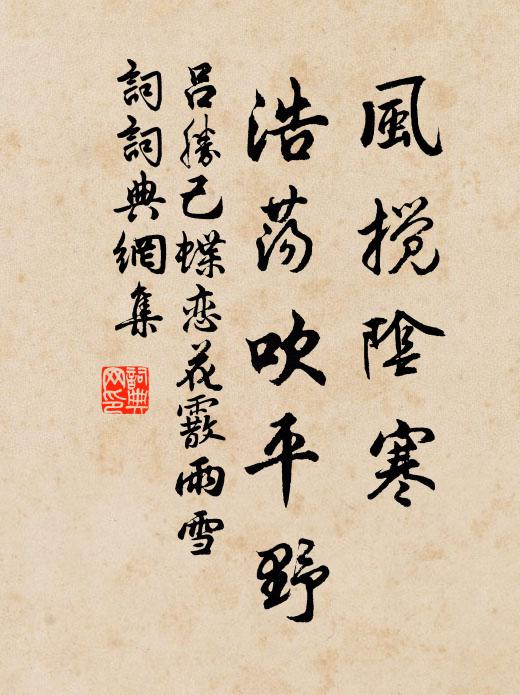 風搅陰寒
浩荡吹平野
吕勝己蝶恋花霰雨雪
詞詞典網集
詞典
网印